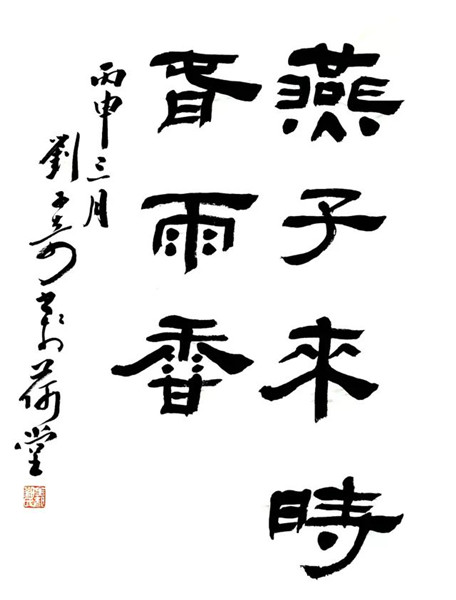 燕子來時
春雨香
丙申三月
劉書於荷堂